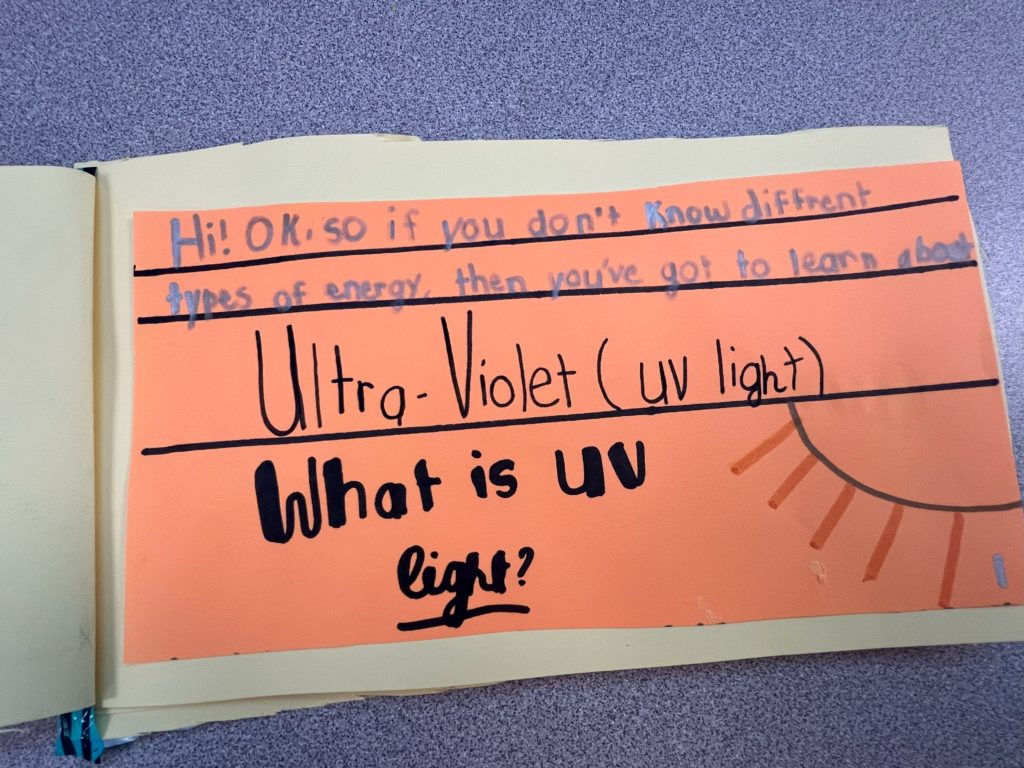 Hi! OK. so if you don't know diffrent
types of energy, then you've got to learn about
Ultra-Violet (uv light)
What is uv
light?
1